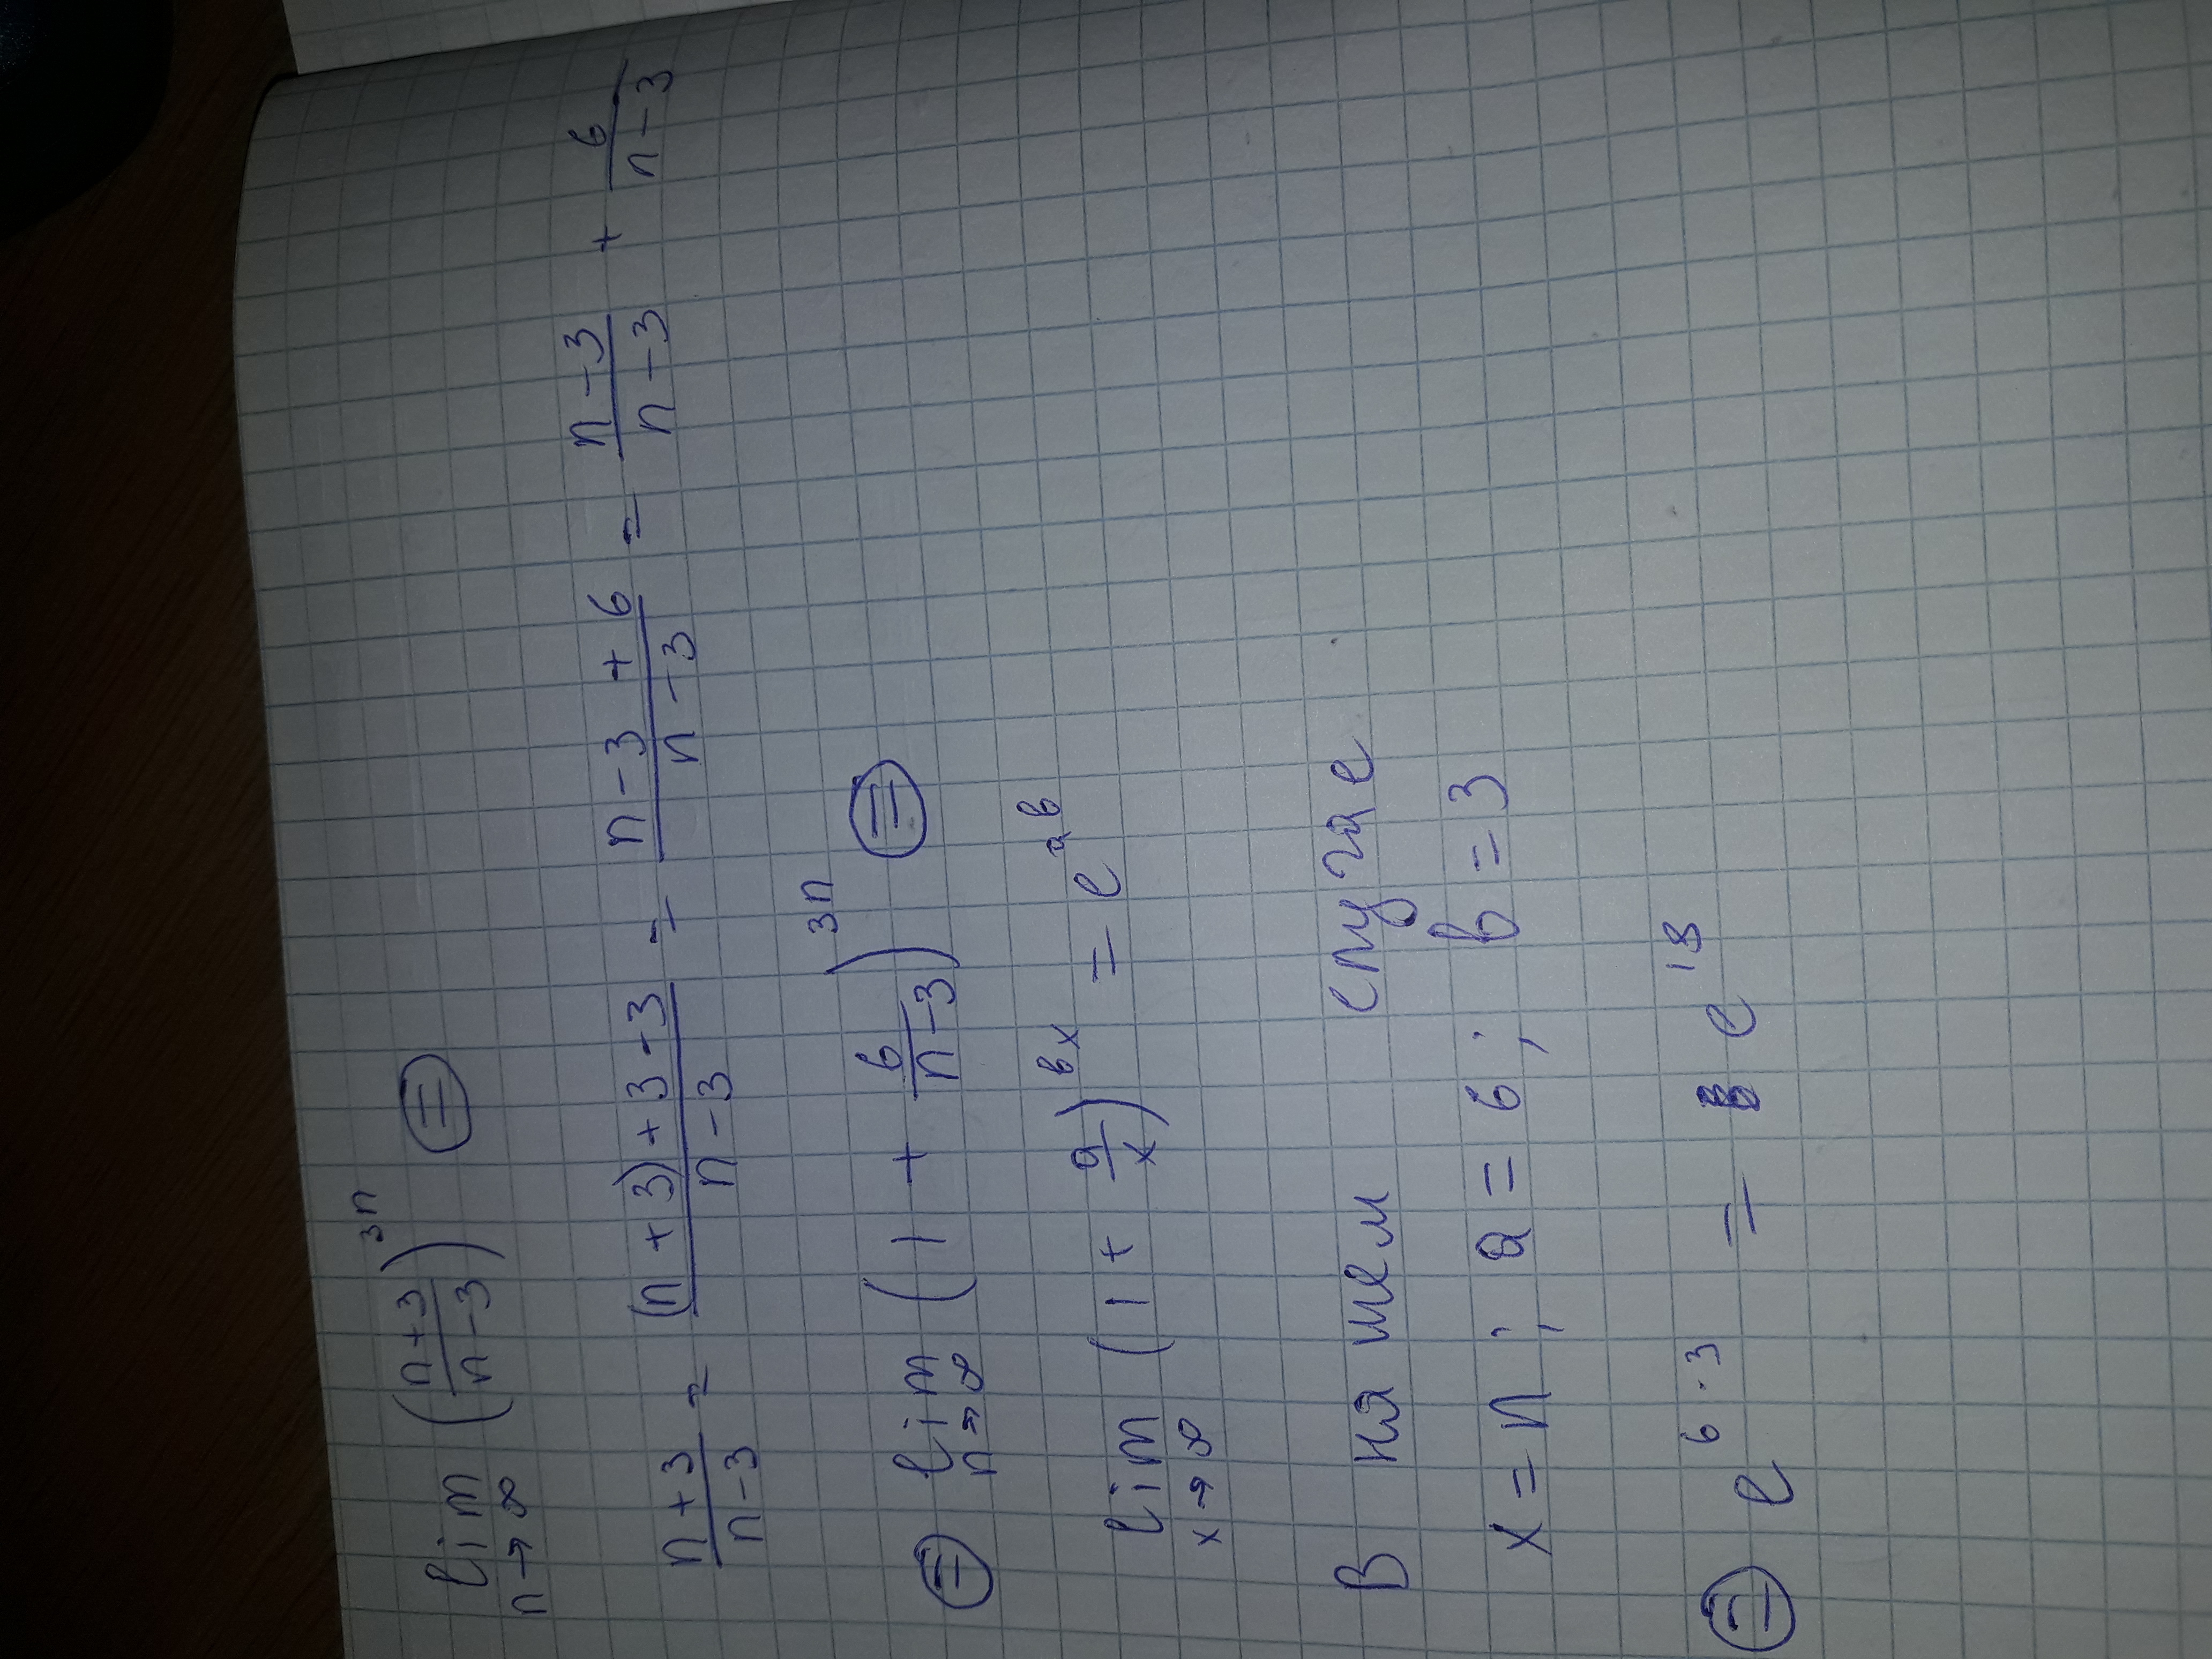 lim n→∞ ((n+3)/(n-3))^3n ⊜
(n+3)/(n-3) = ((n+3)+3-3)/(n-3) = (n-3+6)/(n-3) = (n-3)/(n-3) + 6/(n-3)
⊜ lim n→∞ (1 + 6/(n-3))^3n ⊜
lim x→∞ (1 + a/x)^вx = e^aв
В нашем случае
x = n; a = 6; b = 3
⊜ e^6·3 = e^18